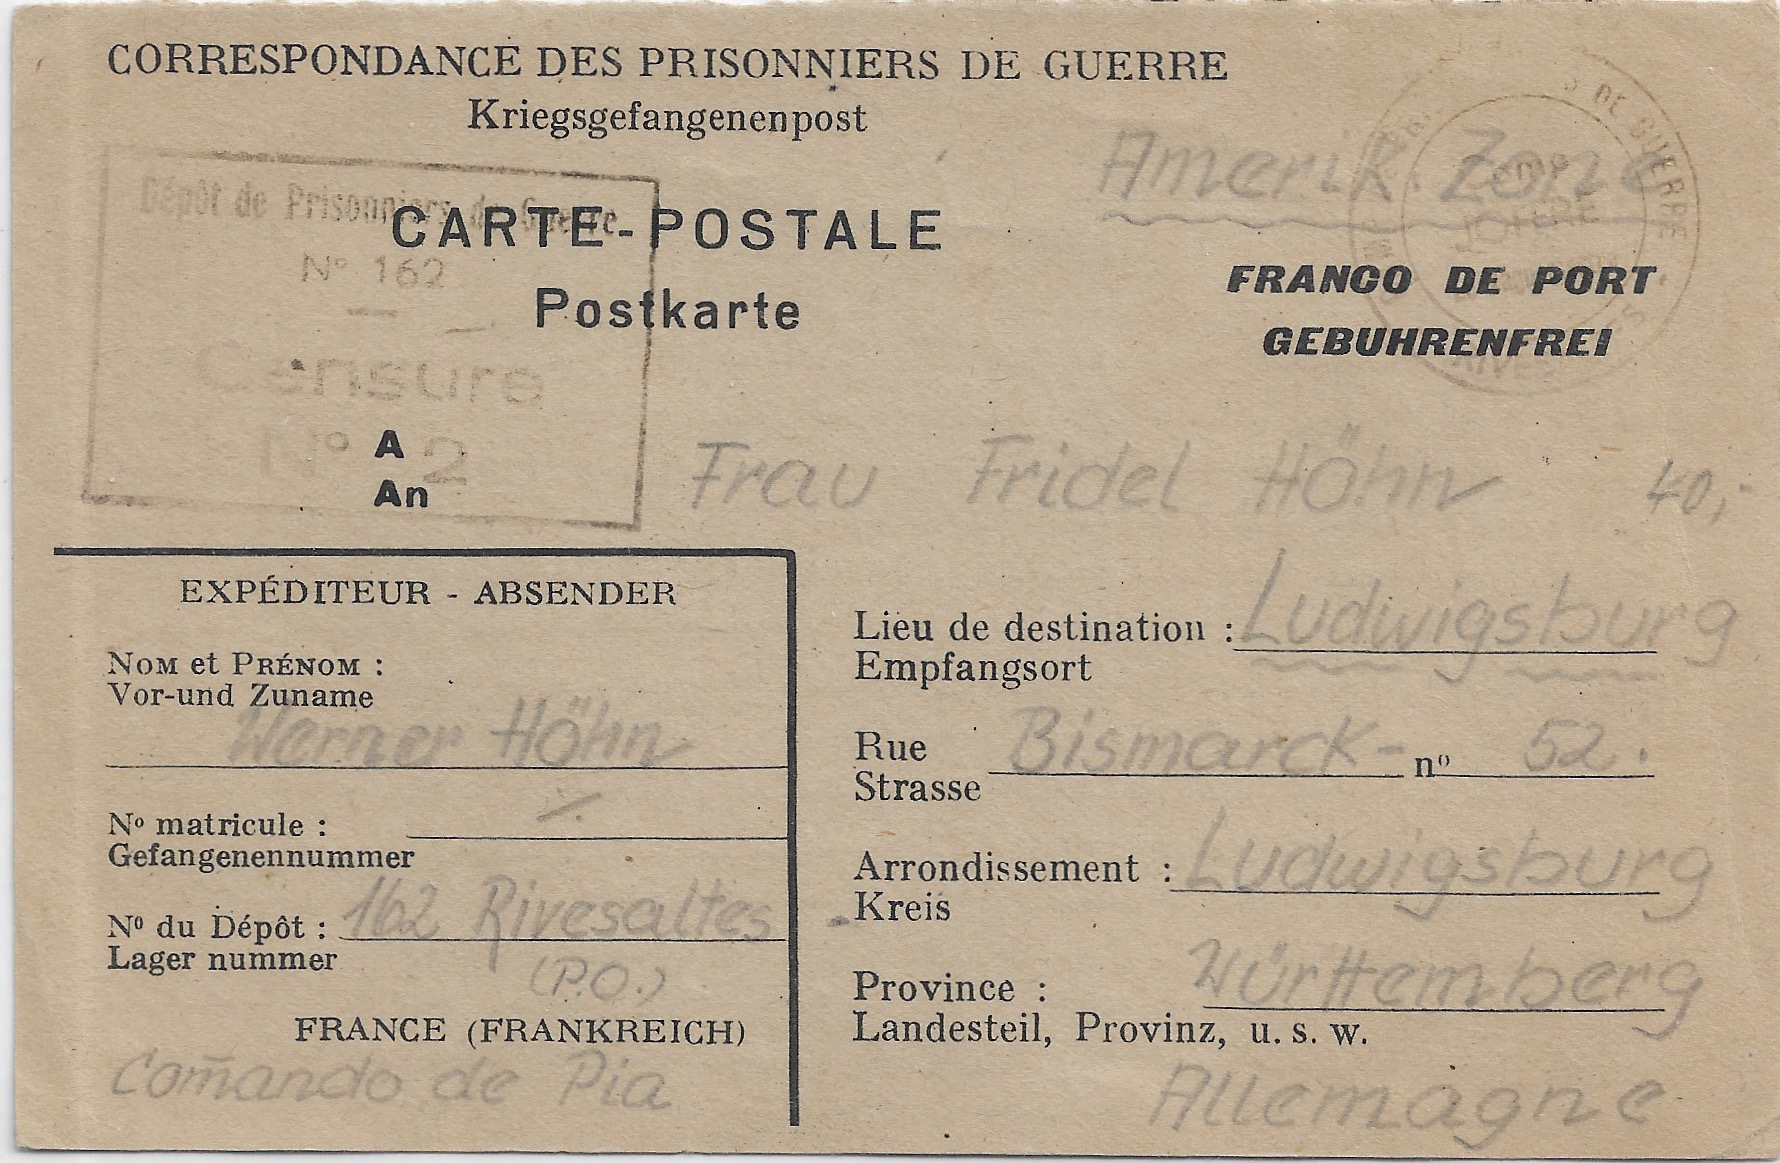 CORRESPONDANCE DES PRISONNIERS DE GUERRE
Kriegsgefangenenpost
Amerik. Zone
DE GUERRE
Dépôt de Prisonniers de Guerre
N° 162
Censure
N° 2
CARTE-POSTALE
Postkarte
FRANCO DE PORT
GEBUHRENFREI
A
An
Frau Fridel Höhn
40,-
EXPÉDITEUR - ABSENDER
NOM et PRÉNOM :
Vor-und Zuname
Werner Höhn
No matricule :
Gefangenennummer
No du Dépôt : 162 Rivesaltes
Lager nummer
(P.O.)
FRANCE (FRANKREICH)
Com̄ando de Pia
Lieu de destination : Ludwigsburg
Empfangsort
Rue Bismarck- no 52.
Strasse
Arrondissement : Ludwigsburg
Kreis
Province : Württemberg
Landesteil, Provinz, u. s. w.
Allemagne